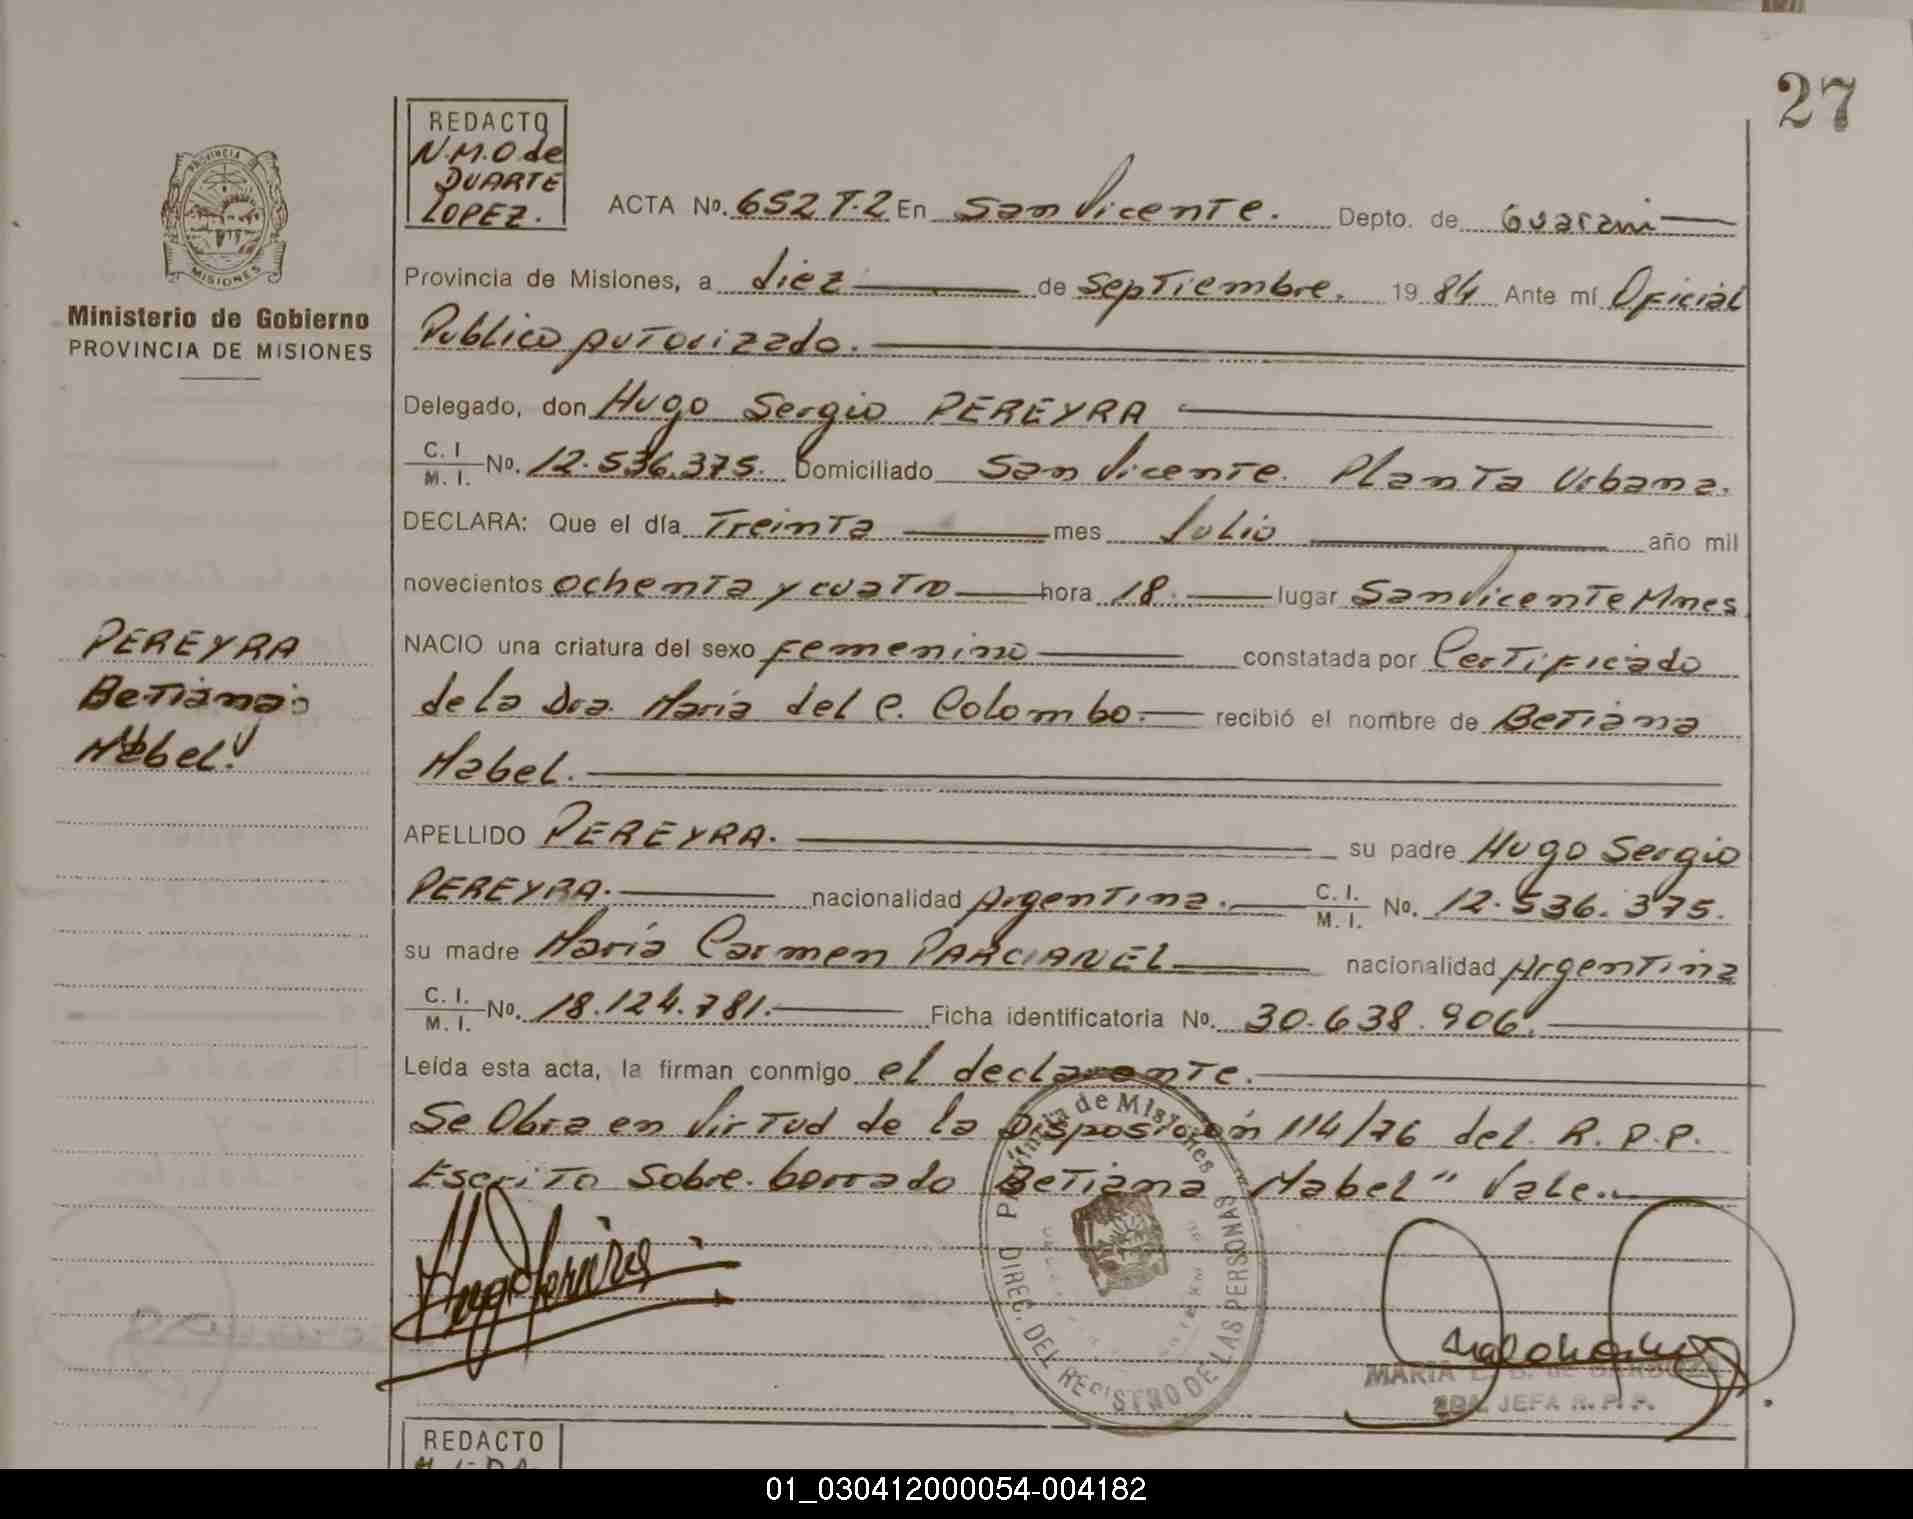 27
REDACTO
N.M.O. de
DUARTE
LOPEZ.
PROVINCIA DE
MISIONES
Ministerio de Gobierno
PROVINCIA DE MISIONES
ACTA Nº. 652 T.2 En San Vicente. Depto. de Guarani
Provincia de Misiones, a diez de Septiembre. 19 84 Ante mí Oficial
Publico autorizado.
Delegado, don Hugo Sergio PEREYRA
C. I. M. I. Nº. 12.536.375. Domiciliado San Vicente. Planta Urbana.
DECLARA: Que el día Treinta mes Julio año mil
novecientos ochenta y cuatro hora 18. lugar San Vicente Mnes
NACIO una criatura del sexo femenino constatada por Certificado
de la Dra. María del C. Colombo. recibió el nombre de Betiana
Mabel.
APELLIDO PEREYRA. su padre Hugo Sergio
PEREYRA. nacionalidad Argentina. C. I. M. I. Nº. 12.536.375.
su madre María Carmen PARCIANEL nacionalidad Argentina
C. I. M. I. Nº. 18.124.781. Ficha identificatoria Nº. 30.638.906.
Leída esta acta, la firman conmigo el declarante.
Se Obra en Virtud de la Disposición 114/76 del R.P.P.
Escrito Sobre borrado Betiana Mabel" Vale.
PEREYRA
Betiana
Mabel.
Provincia de Misiones
DIREC. DEL REGISTRO DE LAS PERSONAS
MARIA E. B. de CARDOZA
2DA. JEFA R. P. P.
REDACTO
01_030412000054-004182